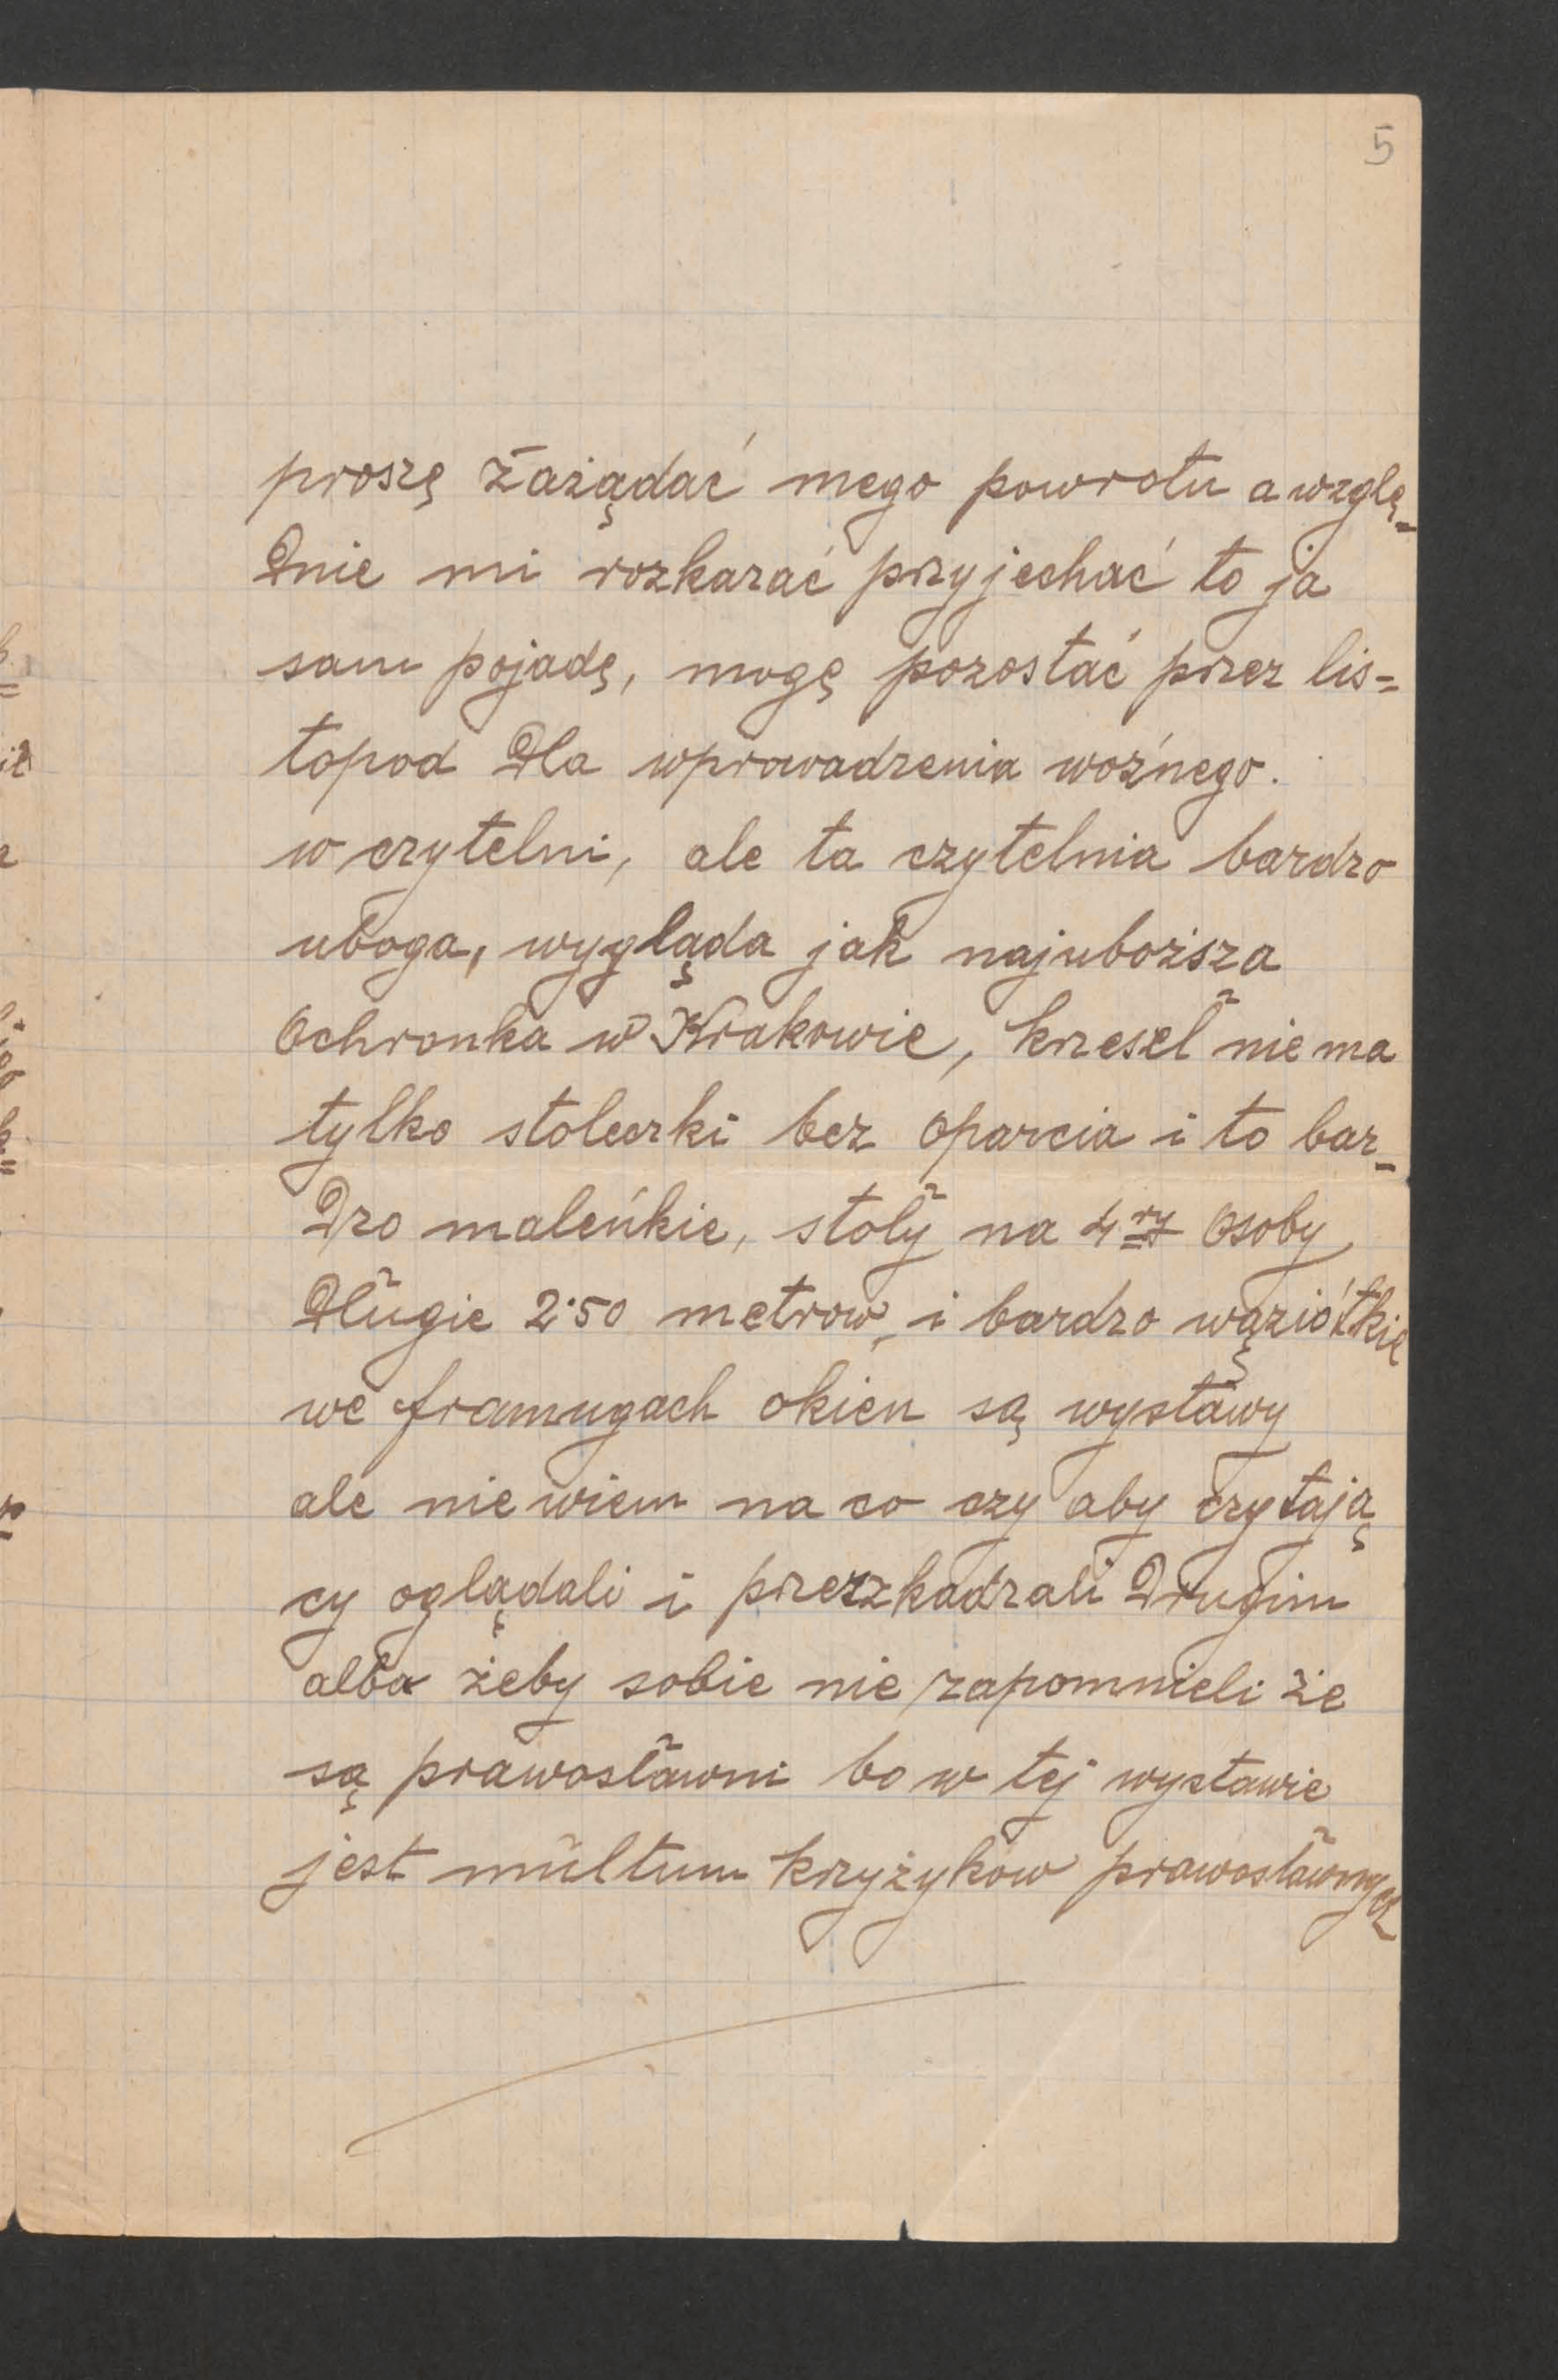 5
proszę zażądać mego powrotu a wzglę-
dnie mi rozkazać przyjechać to ja
sam pojadę, mogę pozostać przez lis=
topod dla wprowadzenia woźnego.
w czytelni, ale ta czytelnia bardzo
uboga, wygląda jak najuboższa
Ochronka w Krakowie, krzeseł nie ma
tylko stoleczki bez oparcia i to bar-
dzo maleńkie, stoły na 4ry osoby
długie 2·50 metrow, i bardzo wąziótkie
we framugach okien są wystawy
ale nie wiem na co czy aby czytają
cy oglądali i przezzkadzali drugim
albo żeby sobie nie zapomnieli że
są prawosławni bo w tej wystawie
jest multum krzyżyków prawosławnych